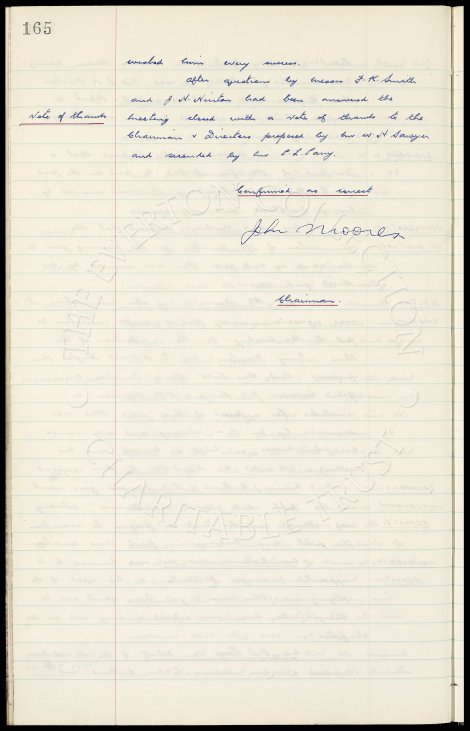 165
wished him every success.
After questions by Messrs F.K. Smith
and J H Hinton had been answered the
Vote of thanks
meeting closed with a vote of thanks to the
Chairman & Directors proposed by Mr W H Sawyer
and seconded by Mr P.L.
Confirmed as correct
John Moores
Chairman.
THE EVERTON COLLECTION
CHARITABLE TRUST